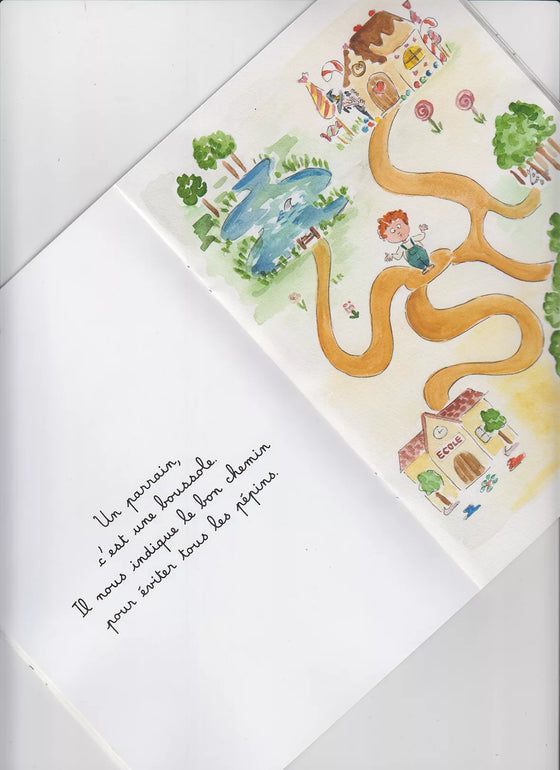 Un parrain,
c'est une boussole.
Il nous indique le bon chemin
pour éviter tous les pépins.
ECOLE